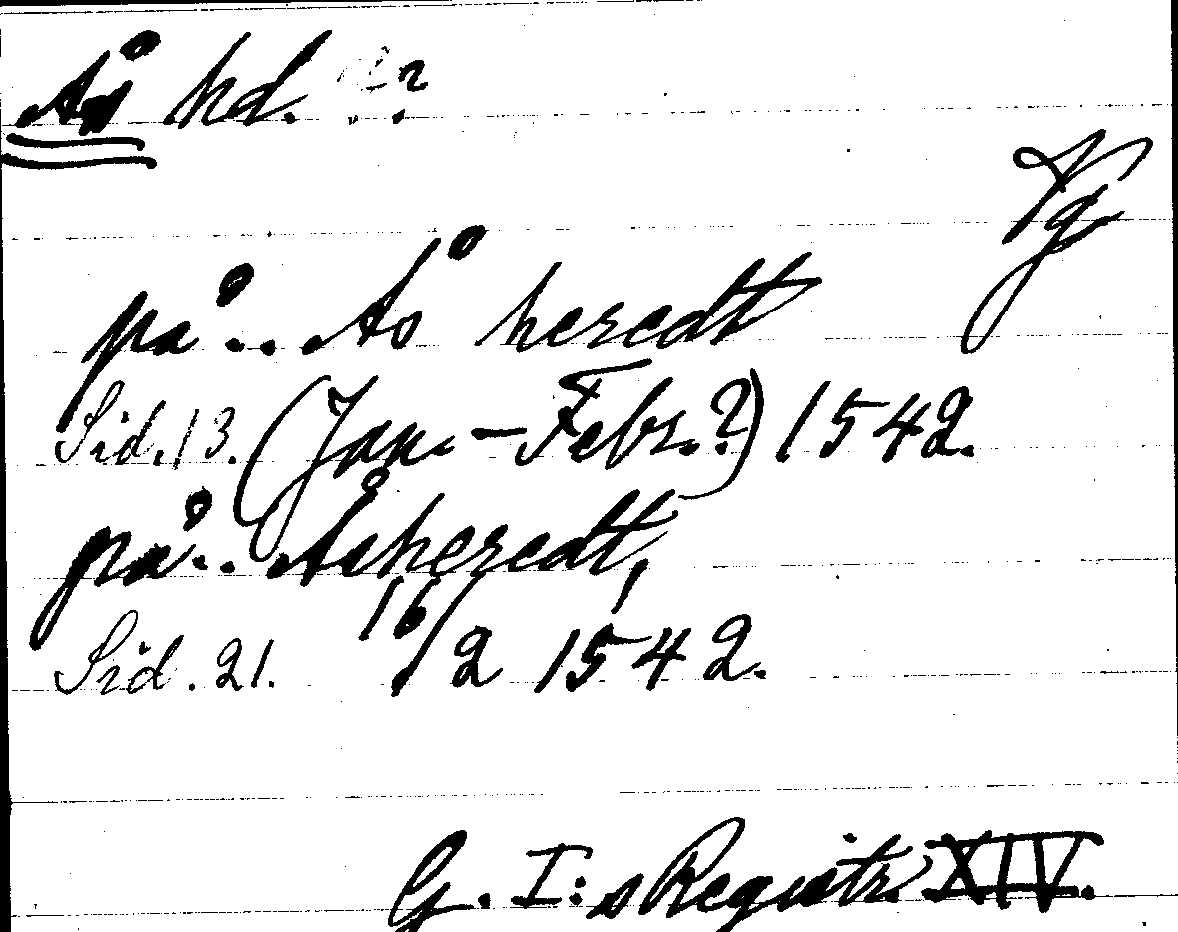 Ås hd. ??
Vg
på .. Ås heredt
Sid. 13. (Jan. – Febr.?) 1542.
på .. Åsheredt,
Sid. 21. 16/2 1542.
G. I:s Registr. XIV.